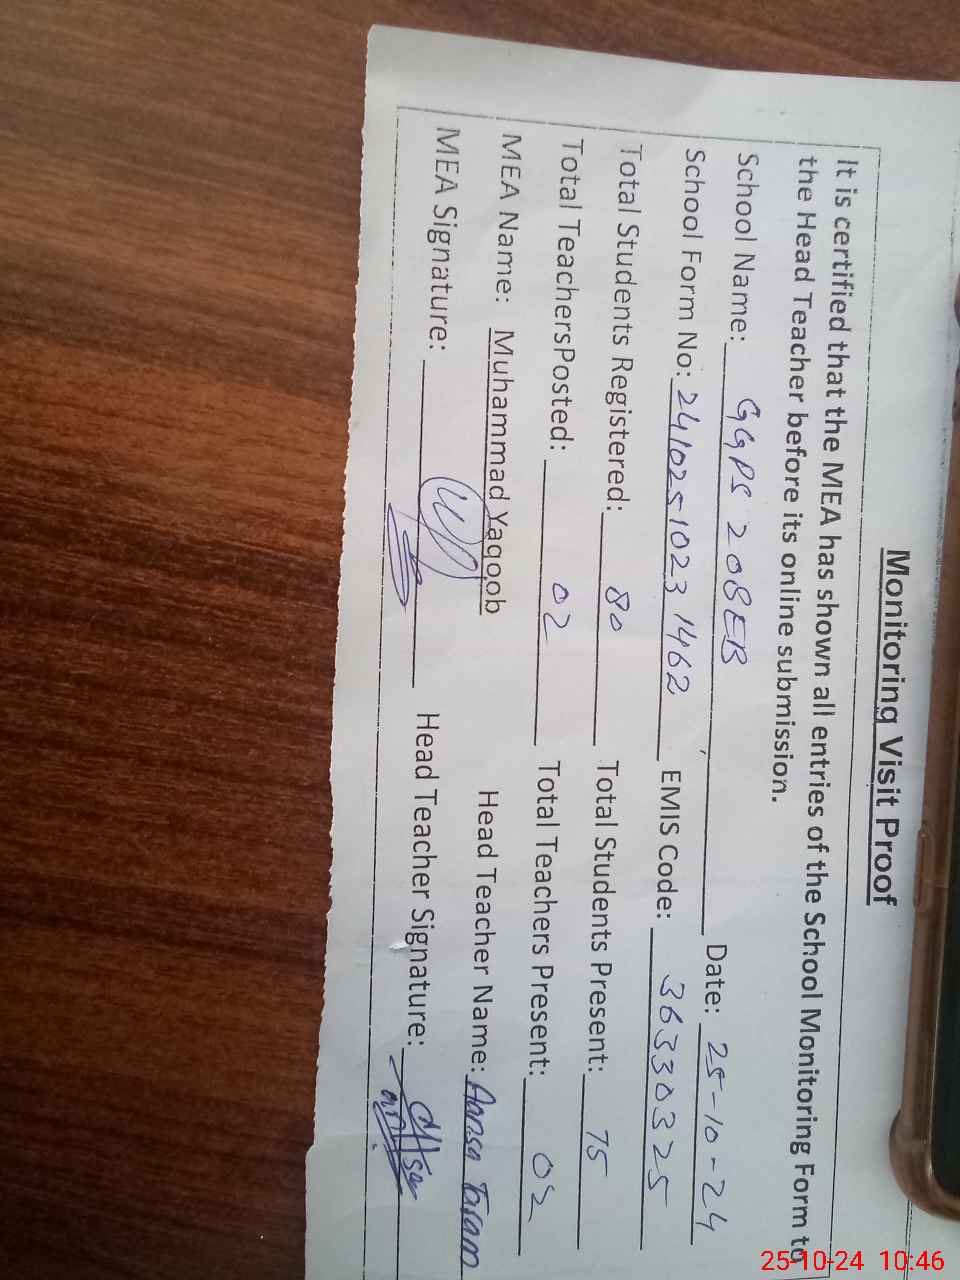 Monitoring Visit Proof
It is certified that the MEA has shown all entries of the School Monitoring Form to
the Head Teacher before its online submission.
School Name: GGPS 208EB Date: 25-10-24
School Form No: 2410251023 1462 EMIS Code: 36330325
Total Students Registered: 80 Total Students Present: 75
Total TeachersPosted: 02 Total Teachers Present: 02
MEA Name: Muhammad Yaqoob Head Teacher Name:
MEA Signature: Head Teacher Signature:
25-10-24 10:46